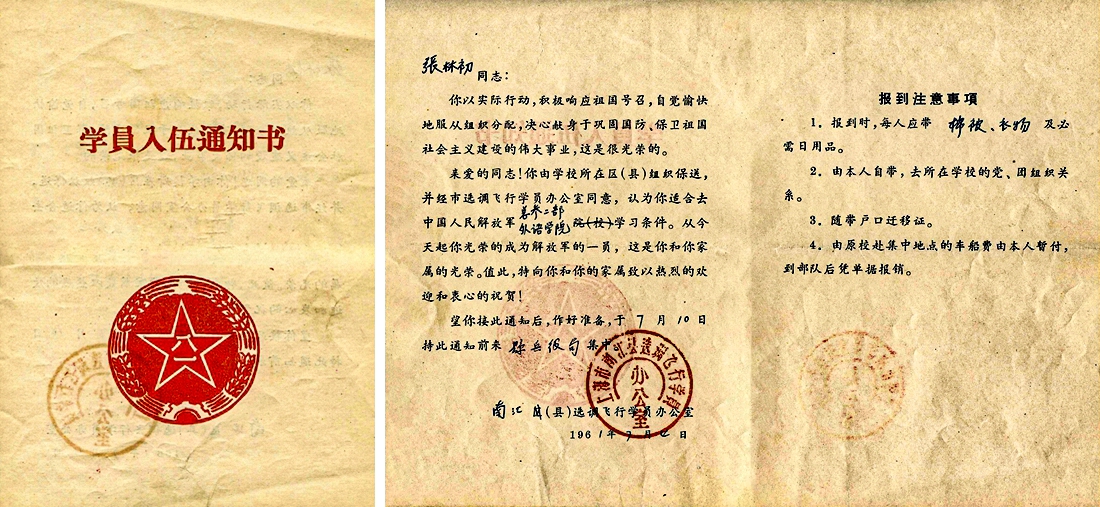 学員入伍通知书
八一
張林初 同志：
你以实际行动，积极响应祖国号召，自觉愉快
地服从组织分配，决心献身于巩固国防、保卫祖国
社会主义建设的伟大事业，这是很光荣的。
亲爱的同志！你由学校所在区（县）组织保送，
并经市选调飞行学员办公室同意，认为你适合去
中国人民解放军总参二部外语学院院（校）学习条件。从今
天起你光荣的成为解放军的一员，这是你和你家
属的光荣。值此，特向你和你的家属致以热烈的欢
迎和衷心的祝贺！
望你接此通知后，作好准备，于 7 月 10 日
持此通知前来 集中。
南汇 县（县）选调飞行学员办公室
1961年7月 日
上海市南汇县选调飞行学员
办公室
报到注意事項
1．报到时，每人应带 棉被、衣物 及必
需日用品。
2．由本人自带，去所在学校的党、团组织关
系。
3．随带户口迁移证。
4．由原校赴集中地点的车船费由本人暂付，
到部队后凭单据报销。